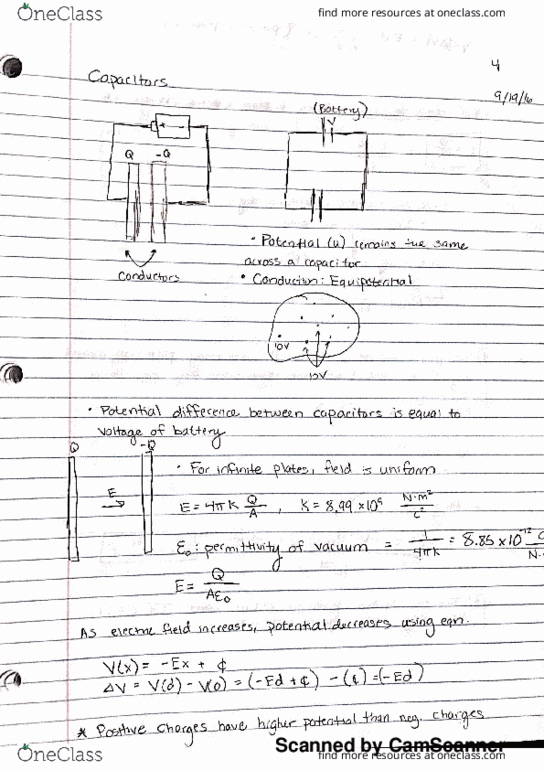 OneClass
find more resources at oneclass.com
4
Capacitors
9/19/16
(Battery)
V
+ -
Q -Q
conductors
• Potential (u) remains the same
across a capacitor
• Conductors: Equipotential
10V
10V
• Potential difference between capacitors is equal to
voltage of battery
Q -Q
E
• For infinite plates, field is uniform
E = 4πK Q/A , K = 8.99 × 10⁹ N·m²/C²
ε₀: permittivity of vacuum = 1/4πK = 8.85 × 10⁻¹²
E = Q/Aε₀
As electric field increases, potential decreases using eqn.
V(x) = -Ex + ¢
ΔV = V(d) - V(0) = (-Ed + ¢) - (¢) = (-Ed)
* Positive charges have higher potential than neg. charges
Scanned by CamScanner
OneClass
find more resources at oneclass.com